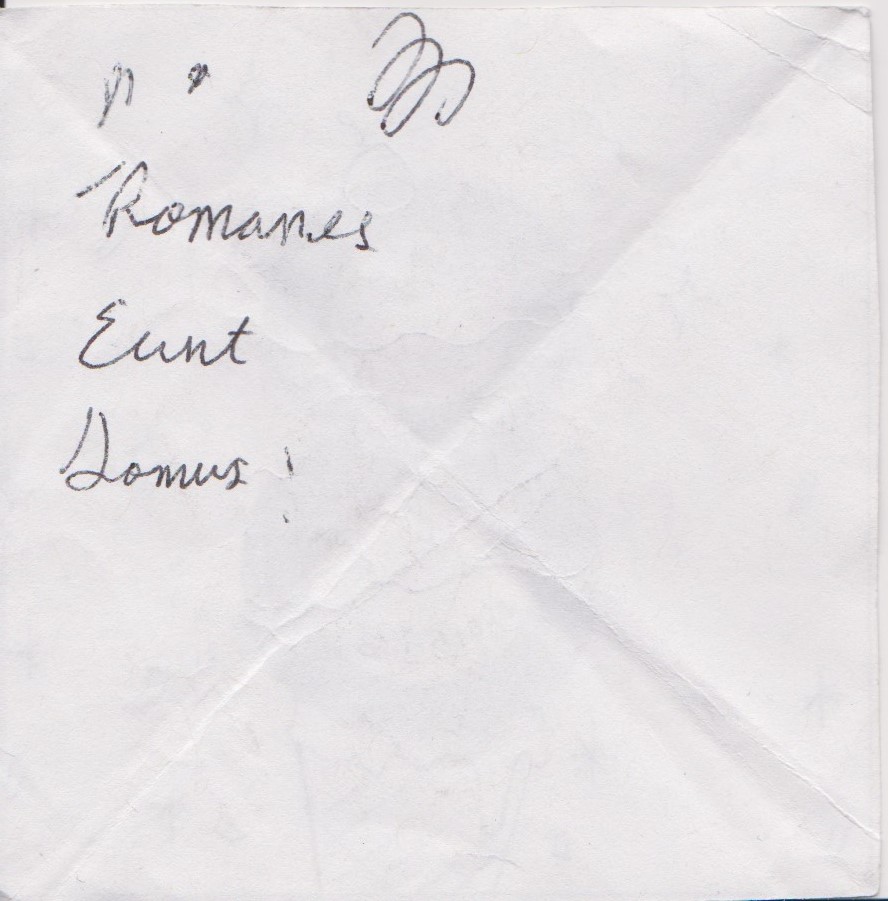 Romanes
Eunt
Domus!